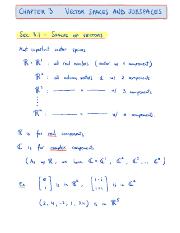 CHAPTER 3 VECTOR SPACES AND SUBSPACES
SEC 3.1 - SPACES OF VECTORS
Most important vector spaces
ℝ = ℝ¹ : all real numbers (vector w/ 1 component)
ℝ² : all column vectors w/ 2 components
ℝ³ : —— " —— w/ 3 components
ℝⁿ : —— " —— w/ n components
ℝ is for real components
ℂ is for complex components
(As w/ ℝ, we have ℂ = ℂ¹, ℂ², ℂ³, ... ℂⁿ)
is in ℝ³, is in ℂ²
is in ℝ⁵